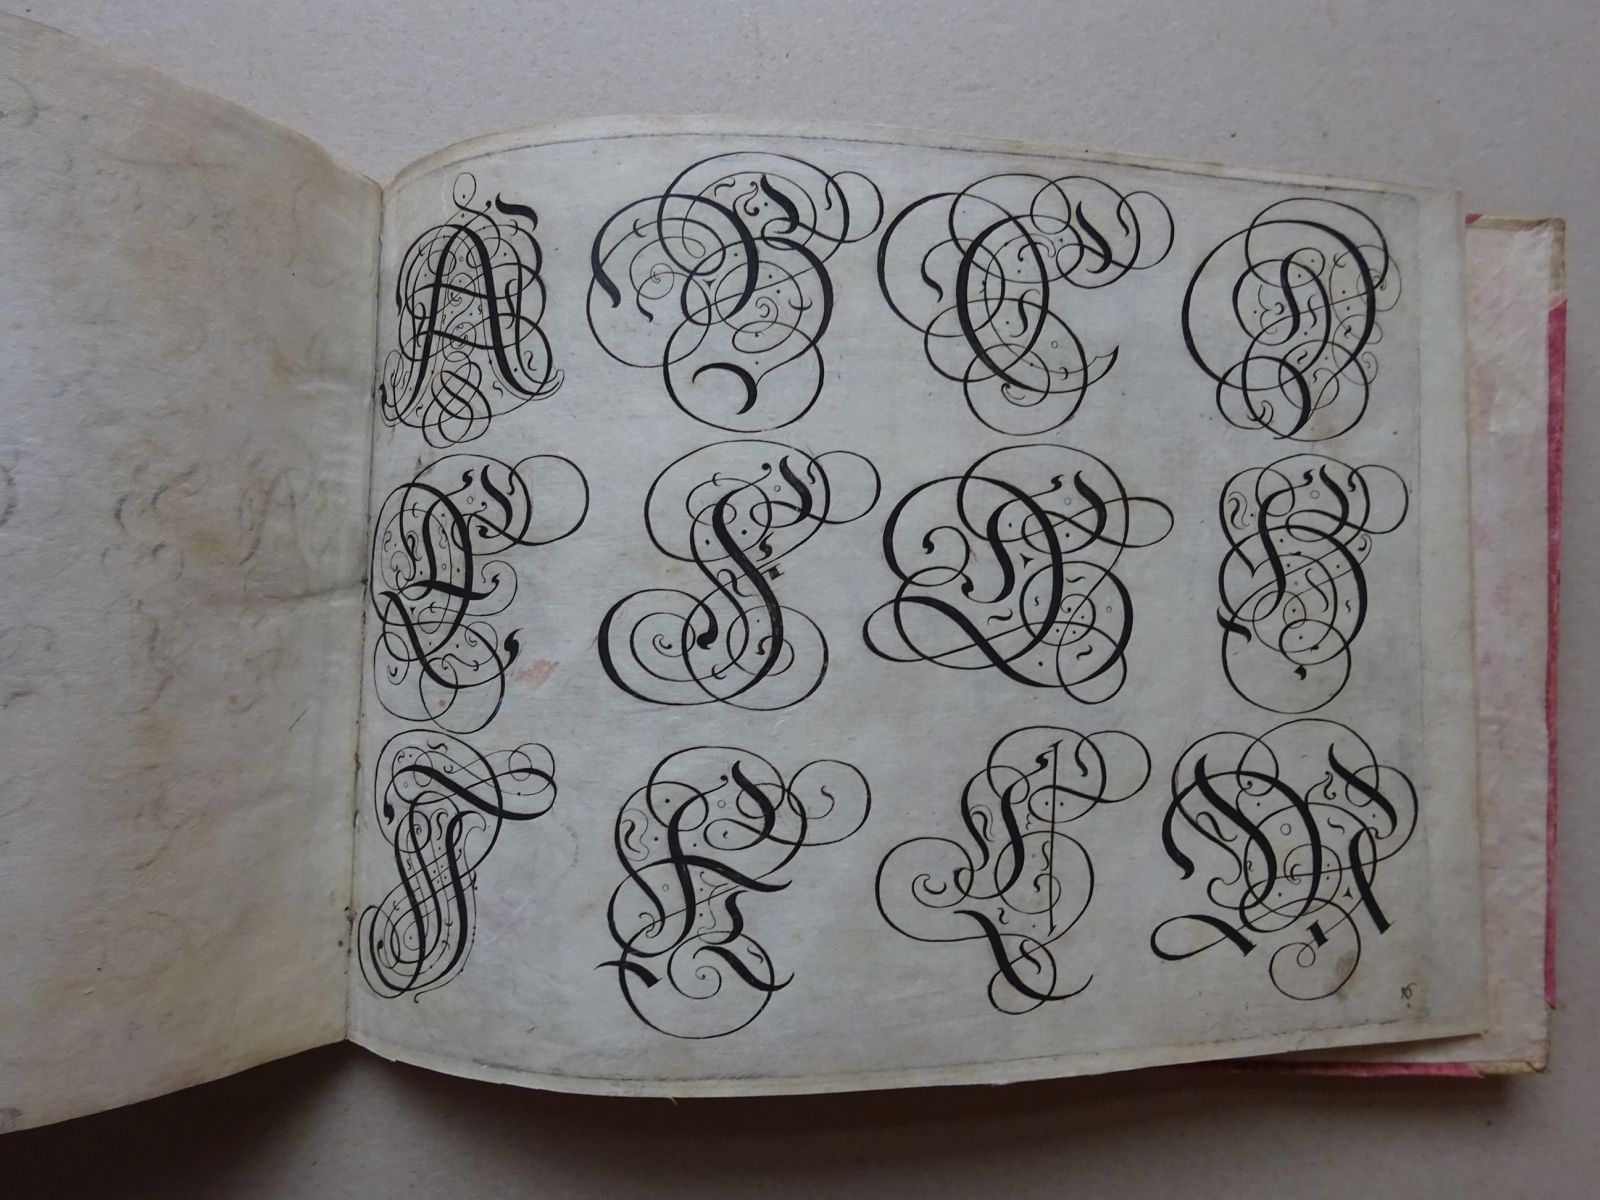 A B C D
E F G H
I K L M
16